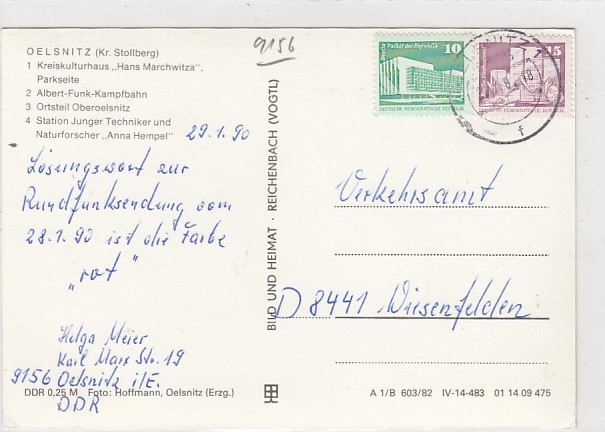 OELSNITZ (Kr. Stollberg)
1 Kreiskulturhaus „Hans Marchwitza",
Parkseite
2 Albert-Funk-Kampfbahn
3 Ortsteil Oberoelsnitz
4 Station Junger Techniker und
Naturforscher „Anna Hempel"
29.1.90
Lösungswort zur
Rundfunksendung vom
28.1.90 ist die Farbe
„rot"
Helga Meier
Karl Marx Str. 19
9156 Oelsnitz i/E.
DDR
DDR 0,25 M Foto: Hoffmann, Oelsnitz (Erzg.)
9156
BILD UND HEIMAT · REICHENBACH (VOGTL)
Palast der Republik 10
DEUTSCHE DEMOKRATISCHE REPUBLIK
15
DEUTSCHE DEMOKRATISCHE REPUBLIK
f
Verkehrsamt
D 8441 Wiesenfelden
A 1/B 603/82 IV-14-483 01 14 09 475